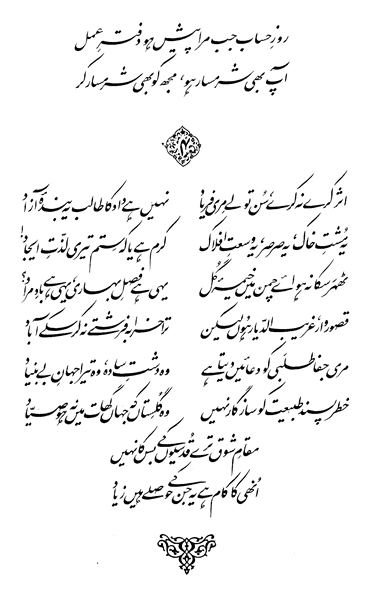 روزِ حساب جب مرا پیش ہو دفترِ عمل
آپ بھی شرمسار ہو، مجھ کو بھی شرمسار کر
۴
اثر کرے نہ کرے، سُن تو لے مِری فریاد نہیں ہے داد کا طالب یہ بندۂ آزاد
یہ مُشتِ خاک، یہ صرصر، یہ وسعتِ افلاک کرم ہے یا کہ ستم تیری لذّتِ ایجاد!
ٹھہر سکا نہ ہوائے چمن میں خیمۂ گُل یہی ہے فصلِ بہاری، یہی ہے بادِ مراد؟
قصوروار، غریب الدّیار ہُوں لیکن ترا خرابہ فرشتے نہ کر سکے آباد
مری جفا طلبی کو دعائیں دیتا ہے وہ دشتِ سادہ، وہ تیرا جہانِ بے بنیاد
خطر پسند طبیعت کو سازگار نہیں وہ گُلِستاں کہ جہاں گھات میں نہ ہو صیّاد
مقامِ شوق ترے قدسیوں کے بس کا نہیں
اُنھی کا کام ہے یہ جن کے حوصلے ہیں زیاد